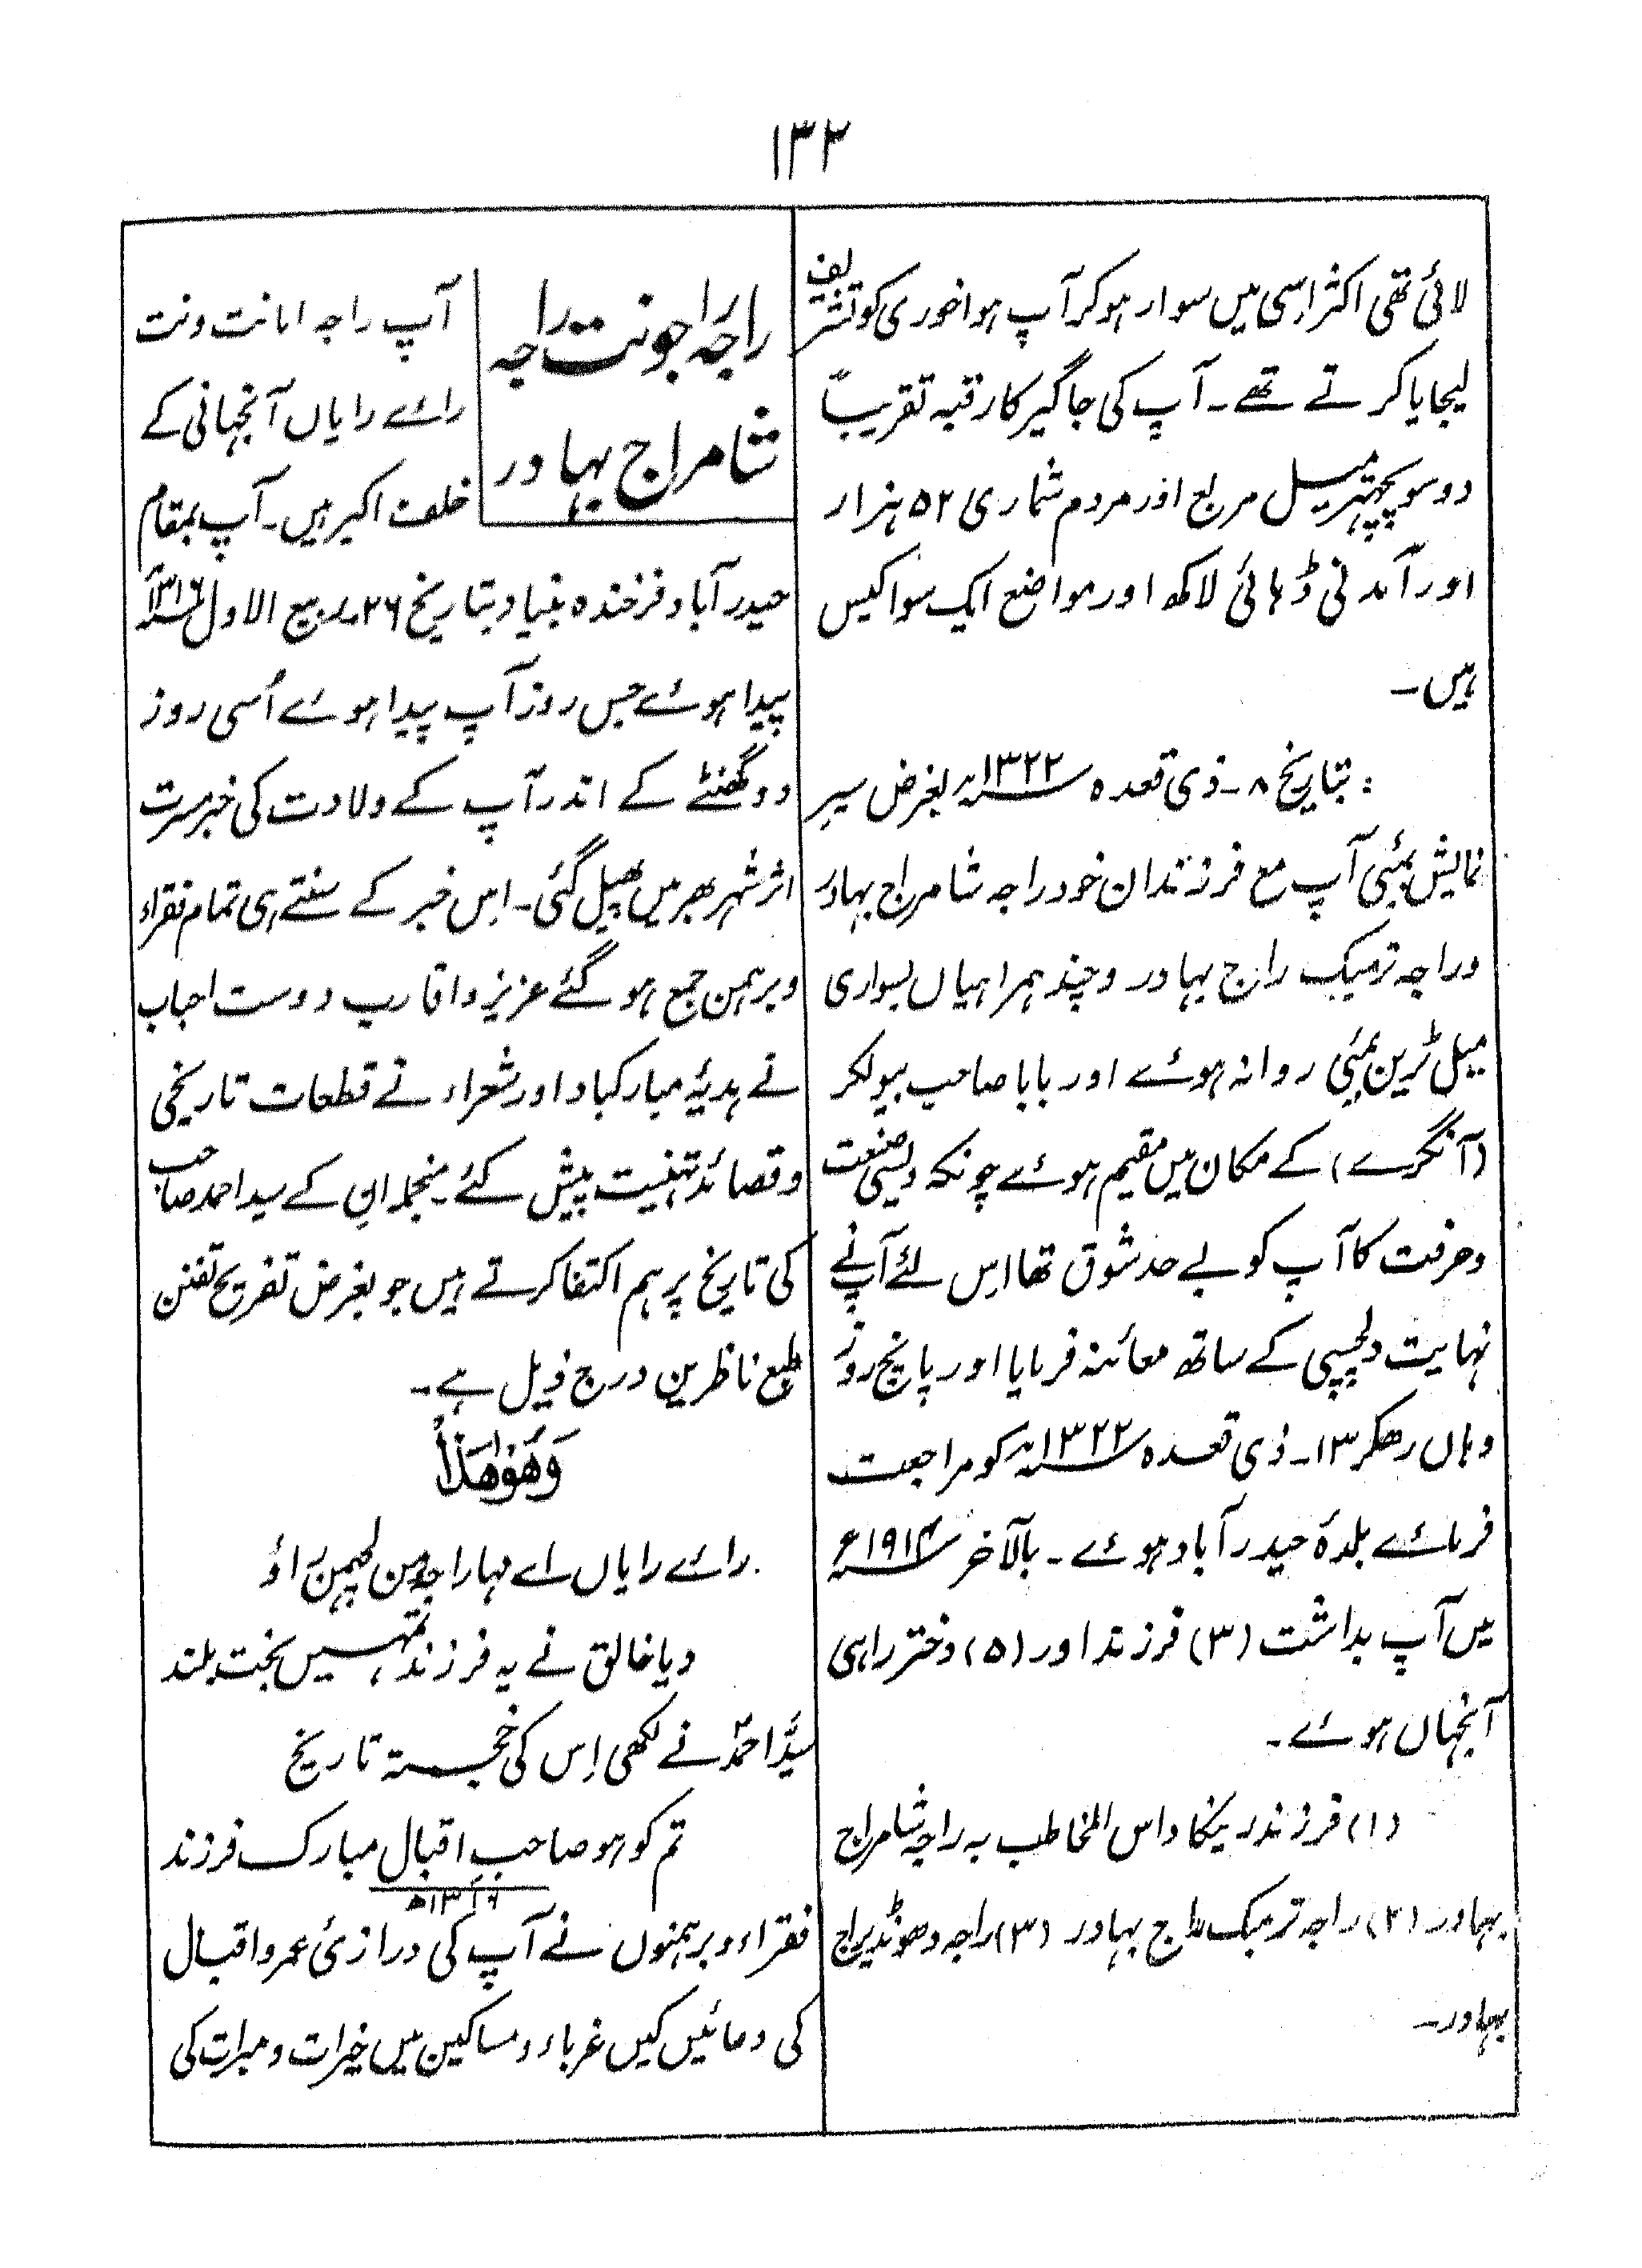 ۱۳۲
لائی تھی اکثر اِسی میں سوار ہوکر آپ ہواخوری کو تشریف
لیجایا کرتے تھے۔ آپ کی جاگیر کا رقبہ تقریباً
دو سو پچہتر میل مربع اور مردم شماری ۵۲ ہزار
اور آمدنی ڈہائی لاکھ اور مواضع ایک سو اکیس
ہیں۔
بتاریخ ۸۔ ذی قعدہ ۱۳۲۲؁ھ بغرض سیرِ
نمایش بمبئی آپ مع فرزندان خود راجہ شامراج بہادر
وراجہ ترمبک راج بہادر و چند ہمراہیاں بسواری
میل ٹرین بمبئی روانہ ہوئے اور بابا صاحب بیولکر
(آنگرے) کے مکان میں مقیم ہوئے چونکہ دیسی صنعت
وحرفت کا آپ کو بے حد شوق تھا اِس لئے آپنے
نہایت دلچسپی کے ساتھ معائنہ فرمایا اور پانچ روز
وہاں رھکر ۱۳۔ ذی قعدہ ۱۳۲۲؁ھ کو مراجعت
فرمائے بلدۂ حیدرآباد ہوئے۔ بالآخر ۱۹۱۴؁ء
میں آپ بداشت (۳) فرزند اور (۵) دختر راہی
آنجہاں ہوئے۔
(۱) فرزند رینگا داس المخاطب بہ راجہ شامراج
بہادر (۲) راجہ ترمبک راج بہادر (۳) راجہ دھونڈیراج
بہادر۔
راجہ راجونت راجہ
شامراج بہادر
آپ راجہ امانت ونت
رائے رایاں آنجہانی کے
خلف اکبر ہیں۔ آپ بمقام
حیدرآباد فرخندہ بنیاد بتاریخ ۲۶۔ ربیع الاول ۱۳۱۶؁ھ
پیدا ہوئے جس روز آپ پیدا ہوئے اُسی روز
دو گھنٹے کے اندر آپ کے ولادت کی خبر مسرت
اثر شہر بھر میں پھیل گئی۔ اِس خبر کے سنتے ہی تمام فقراء
و برہمن جمع ہوگئے عزیز واقارب دوست احباب
نے ہدیۂ مبارکباد اور شعراء نے قطعات تاریخی
وقصائد تہنیت پیش کئے۔ منجملہ اِن کے سید احمد صاحب
کی تاریخ پر ہم اکتفا کرتے ہیں جو بغرض تفریح تفنن
طبع ناظرین درج ذیل ہے۔
وَهُوَهٰذَا
رائے رایاں اے مہاراجہ من لچھمن راؤ
دیا خالق نے یہ فرزند تمہیں بخت بلند
سیّد احمدؔ نے لکھی اِس کی خجستہ تاریخ
تم کو ہو صاحبِ اقبال مبارک فرزند
۱۳۱۶ھ
فقراء و برہمنوں نے آپ کی درازئ عمر و اقبال
کی دعائیں کیں غرباء و مساکین میں خیرات و مبرات کی